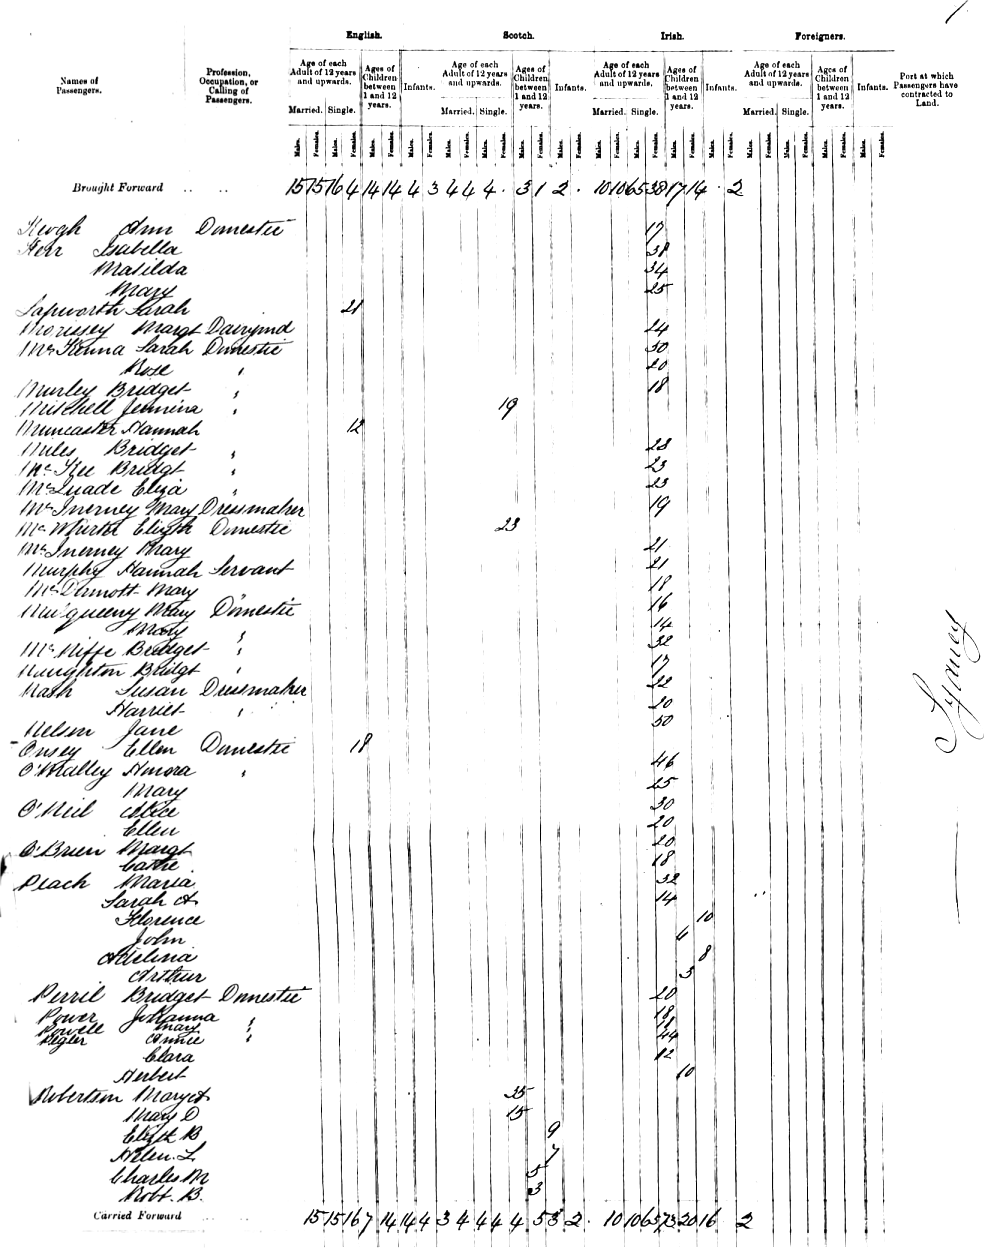 English. Scotch. Irish. Foreigners.
Names of Passengers.
Profession, Occupation, or Calling of Passengers.
Age of each Adult of 12 years and upwards. Ages of Children between 1 and 12 years. Infants. Age of each Adult of 12 years and upwards. Ages of Children between 1 and 12 years. Infants. Age of each Adult of 12 years and upwards. Ages of Children between 1 and 12 years. Infants. Age of each Adult of 12 years and upwards. Ages of Children between 1 and 12 years. Infants.
Port at which Passengers have contracted to Land.
Married. Single. Married. Single. Married. Single. Married. Single.
Males. Females. Males. Females. Males. Females. Males. Females. Males. Females. Males. Females. Males. Females. Males. Females. Males. Females. Males. Females. Males. Females. Males. Females. Males. Females. Males. Females. Males. Females. Males. Females.
Brought Forward .. .. 15 15 16 4 14 14 4 3 4 4 4 . 3 1 2 . 10 10 65 38 17 14 . 2
Keogh Ann Domestic 17
Kerr Isabella 38
Matilda 34
Mary 25
Lapworth Sarah 21
Morissey Margt Dairymd 24
McKenna Sarah Domestic 30
Rose " 20
Murley Bridget " 18
Mitchell Jemima " 19
Muncaster Hannah 12
Miles Bridget " 28
McKee Bridgt " 23
McQuade Eliza " 23
McInerney Mary Dressmaker 19
Elizth Domestic 23
McInerney Mary 21
Murphy Hannah Servant 21
McDermott Mary 18
Mulqueeny Mary Domestic 16
Mary " 14
McNiffe Bridget " 32
Naughton Bridgt " 17
Nash Susan Dressmaker 22
Harriet " 20
Nelson Jane 50
Ellen Domestic 18
O'Malley Honora " 46
Mary 25
O'Neil Alice 30
Ellen 20
O'Brien Margt 20
Cathe 18
Peach Maria 32
Sarah A 14
Florence 10
John
Adelina 8
Arthur 5
Perril Bridget Domestic 20
Power Johanna " 18
Powell Mary " 18
Pegler Annie " 44
Clara 12
Herbert 10
Robertson Mary A 35
Mary D 15
Elizth B 9
Helen L. 7
Charles M 5
Robt. B. 3
Carried Forward .. .. 15 15 16 7 14 14 4 3 4 4 4 4 5 3 2 . 10 10 65 73 20 16 2
Sydney